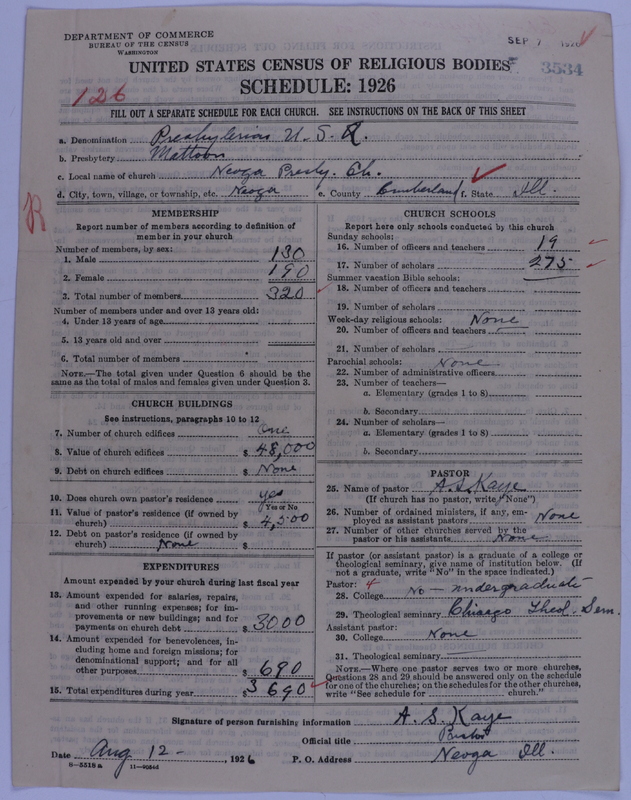 DEPARTMENT OF COMMERCE
BUREAU OF THE CENSUS
WASHINGTON
SEP 7 1926
UNITED STATES CENSUS OF RELIGIOUS BODIES
3534
SCHEDULE: 1926
126
FILL OUT A SEPARATE SCHEDULE FOR EACH CHURCH. SEE INSTRUCTIONS ON THE BACK OF THIS SHEET
a. Denomination Presbyterian U. S. A.
b. Presbytery Mattoon
c. Local name of church Neoga Presby. Ch.
d. City, town, village, or township, etc. Neoga e. County Cumberland f. State Ill.
R
MEMBERSHIP
Report number of members according to definition of
member in your church
Number of members, by sex:
1. Male 130
2. Female 190
3. Total number of members 320
Number of members under and over 13 years old:
4. Under 13 years of age
5. 13 years old and over
6. Total number of members
NOTE.—The total given under Question 6 should be the
same as the total of males and females given under Question 3.
CHURCH BUILDINGS
See instructions, paragraphs 10 to 12
7. Number of church edifices One
8. Value of church edifices $ 48,000
9. Debt on church edifices $ None
10. Does church own pastor's residence yes
Yes or No
11. Value of pastor's residence (if owned by
church) $ 4,500
12. Debt on pastor's residence (if owned by
church) None $
EXPENDITURES
Amount expended by your church during last fiscal year
13. Amount expended for salaries, repairs,
and other running expenses; for im-
provements or new buildings; and for
payments on church debt $ 3000
14. Amount expended for benevolences, in-
cluding home and foreign missions; for
denominational support; and for all
other purposes $ 690
15. Total expenditures during year $ 3690
CHURCH SCHOOLS
Report here only schools conducted by this church
Sunday schools:
16. Number of officers and teachers 19
17. Number of scholars 275
Summer vacation Bible schools:
18. Number of officers and teachers
19. Number of scholars
Week-day religious schools: None
20. Number of officers and teachers
21. Number of scholars
Parochial schools: None
22. Number of administrative officers
23. Number of teachers—
a. Elementary (grades 1 to 8)
b. Secondary
24. Number of scholars—
a. Elementary (grades 1 to 8)
b. Secondary
PASTOR
25. Name of pastor A. S. Kaye
(If church has no pastor, write "None")
26. Number of ordained ministers, if any, em-
ployed as assistant pastors None
27. Number of other churches served by the
pastor or his assistants None
If pastor (or assistant pastor) is a graduate of a college or
theological seminary, give name of institution below. (If
not a graduate, write "No" in the space indicated.)
Pastor: 4
28. College No – undergraduate
29. Theological seminary Chicago Theol. Sem.
Assistant pastor:
30. College None
31. Theological seminary
NOTE.—Where one pastor serves two or more churches,
Questions 28 and 29 should be answered only on the schedule
for one of the churches; on the schedules for the other churches,
write "See schedule for church."
Signature of person furnishing information A. S. Kaye
Official title Pastor
Date Aug 12 - , 1926 P. O. Address Neoga Ill.
8—5318a 11—9054d